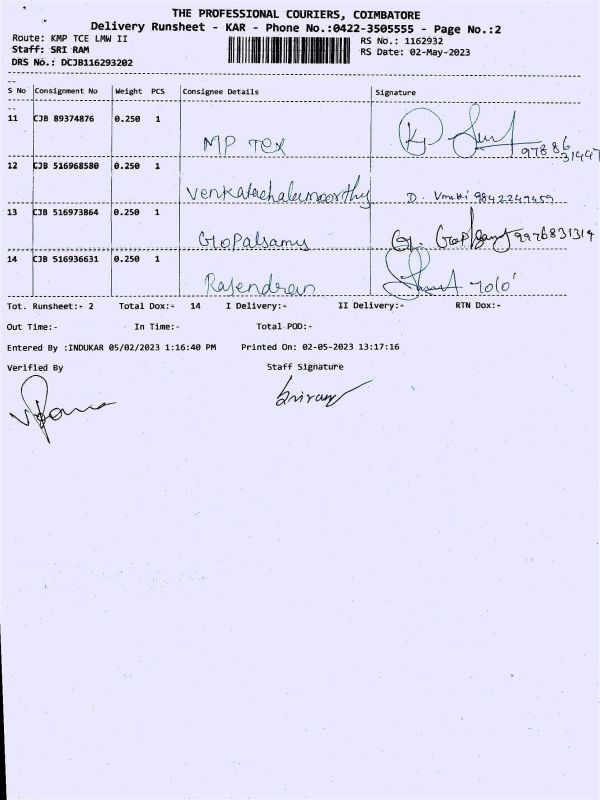 THE PROFESSIONAL COURIERS, COIMBATORE
Delivery Runsheet - KAR - Phone No.:0422-3505555 - Page No.:2
Route: KMP TCE LMW II
RS No.: 1162932
Staff: SRI RAM
RS Date: 02-May-2023
DRS No.: DCJB116293202
S No Consignment No Weight PCS Consignee Details Signature
11 CJB 89374876 0.250 1
MP TEX 97886
31447
12 CJB 516968580 0.250 1
Venkatachalamoorthy D. 9842249459
13 CJB 516973864 0.250 1
Gopalsamy G. 9976831314
14 CJB 516936631 0.250 1
Rajendran
Tot. Runsheet:- 2 Total Dox:- 14 I Delivery:- II Delivery:- RTN Dox:-
Out Time:- In Time:- Total POD:-
Entered By :INDUKAR 05/02/2023 1:16:40 PM Printed On: 02-05-2023 13:17:16
Verified By Staff Signature
Sriram